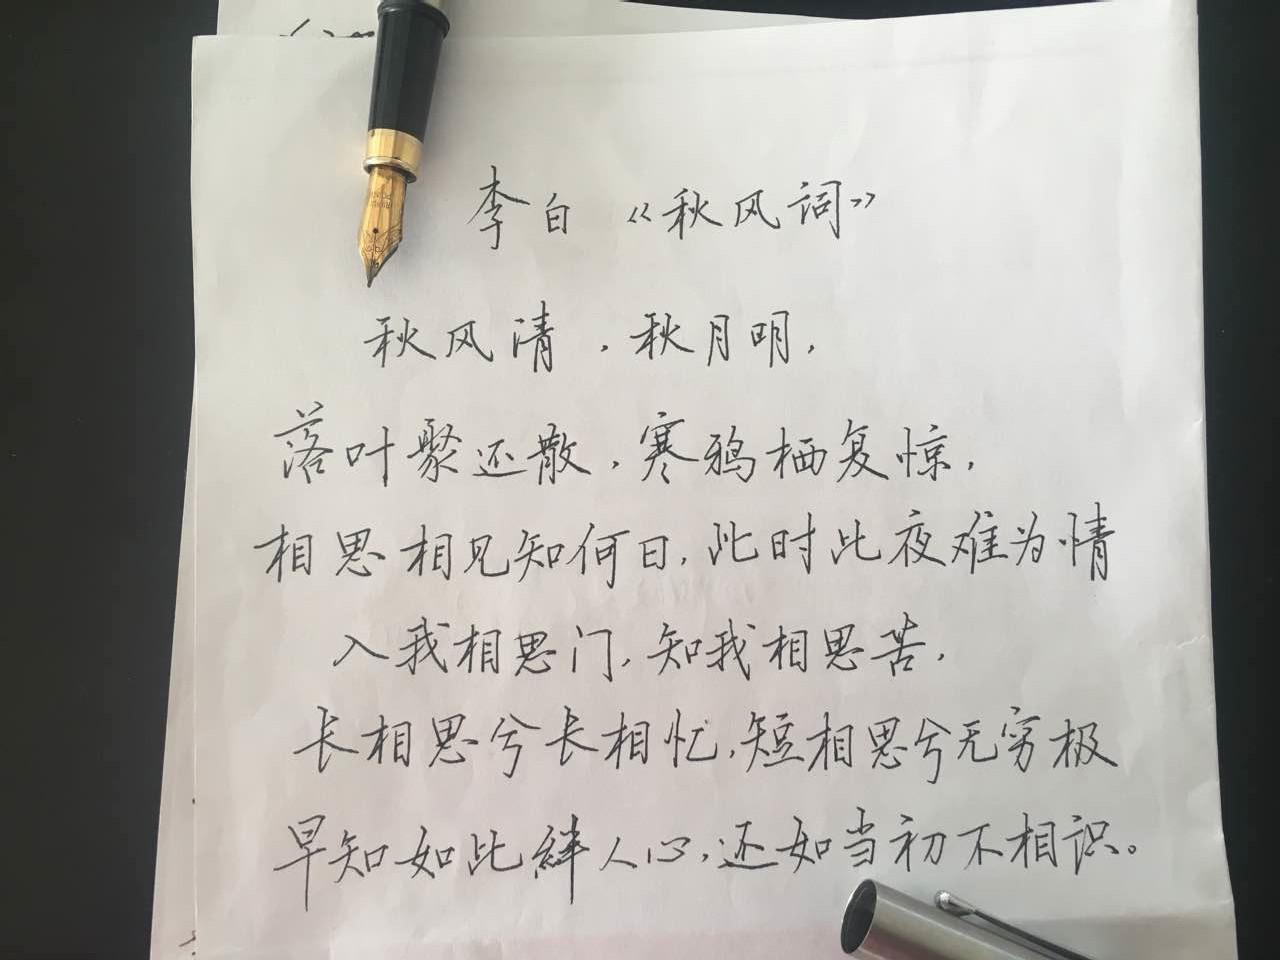 李白《秋风词》
秋风清，秋月明，
落叶聚还散，寒鸦栖复惊，
相思相见知何日，此时此夜难为情
入我相思门，知我相思苦，
长相思兮长相忆，短相思兮无穷极
早知如此絆人心，还如当初不相识。